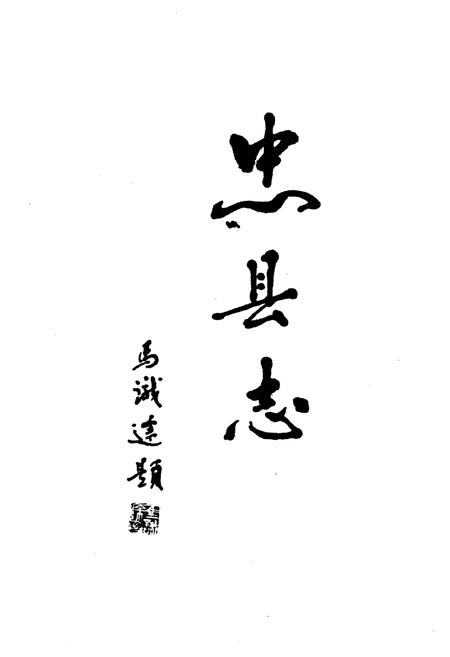 忠县志
馬識途題